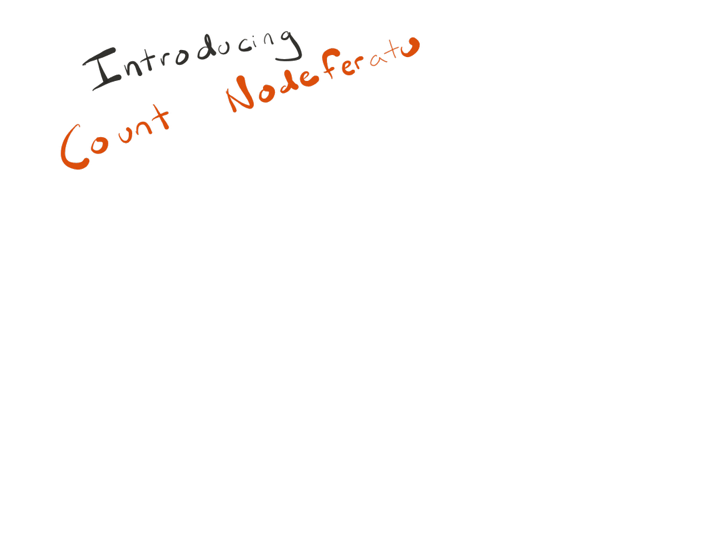 Introducing
Count Nodeferatu